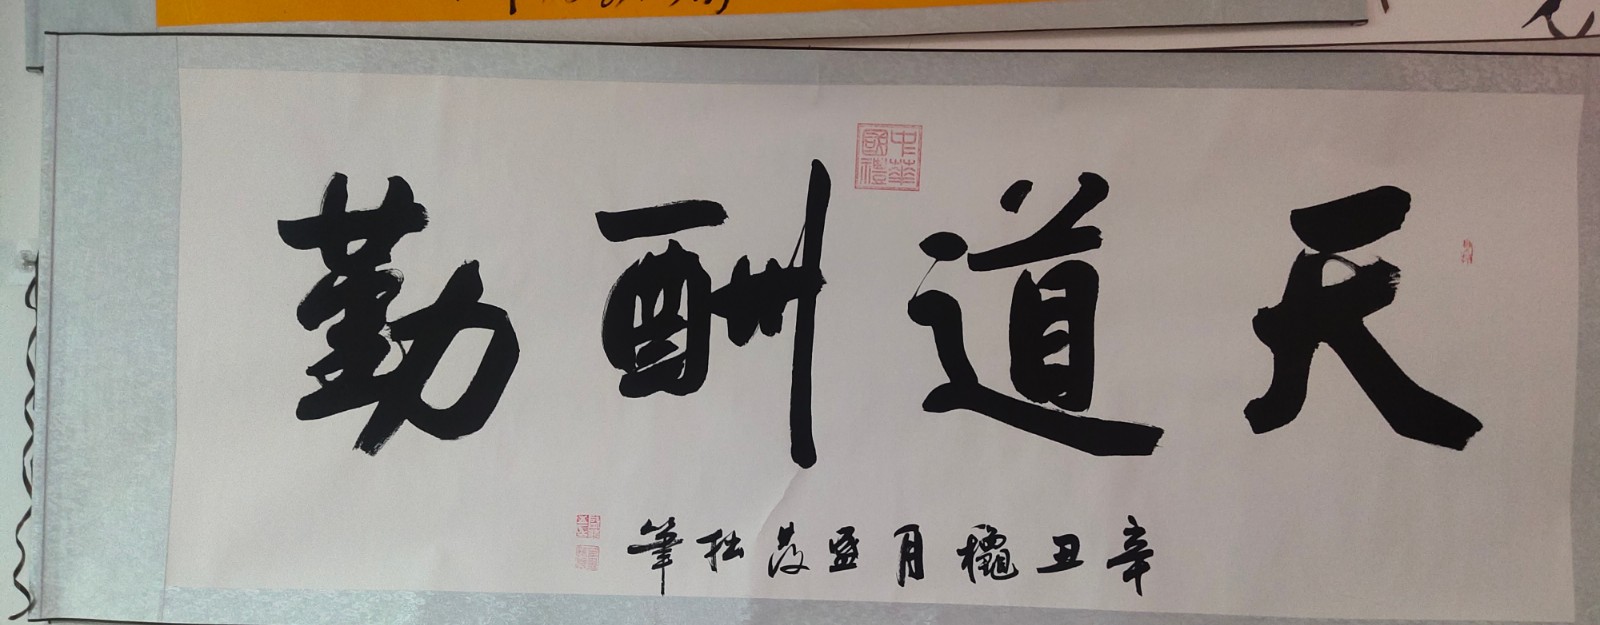 天道酬勤
中華國禮
辛丑龝月盛茂拙筆